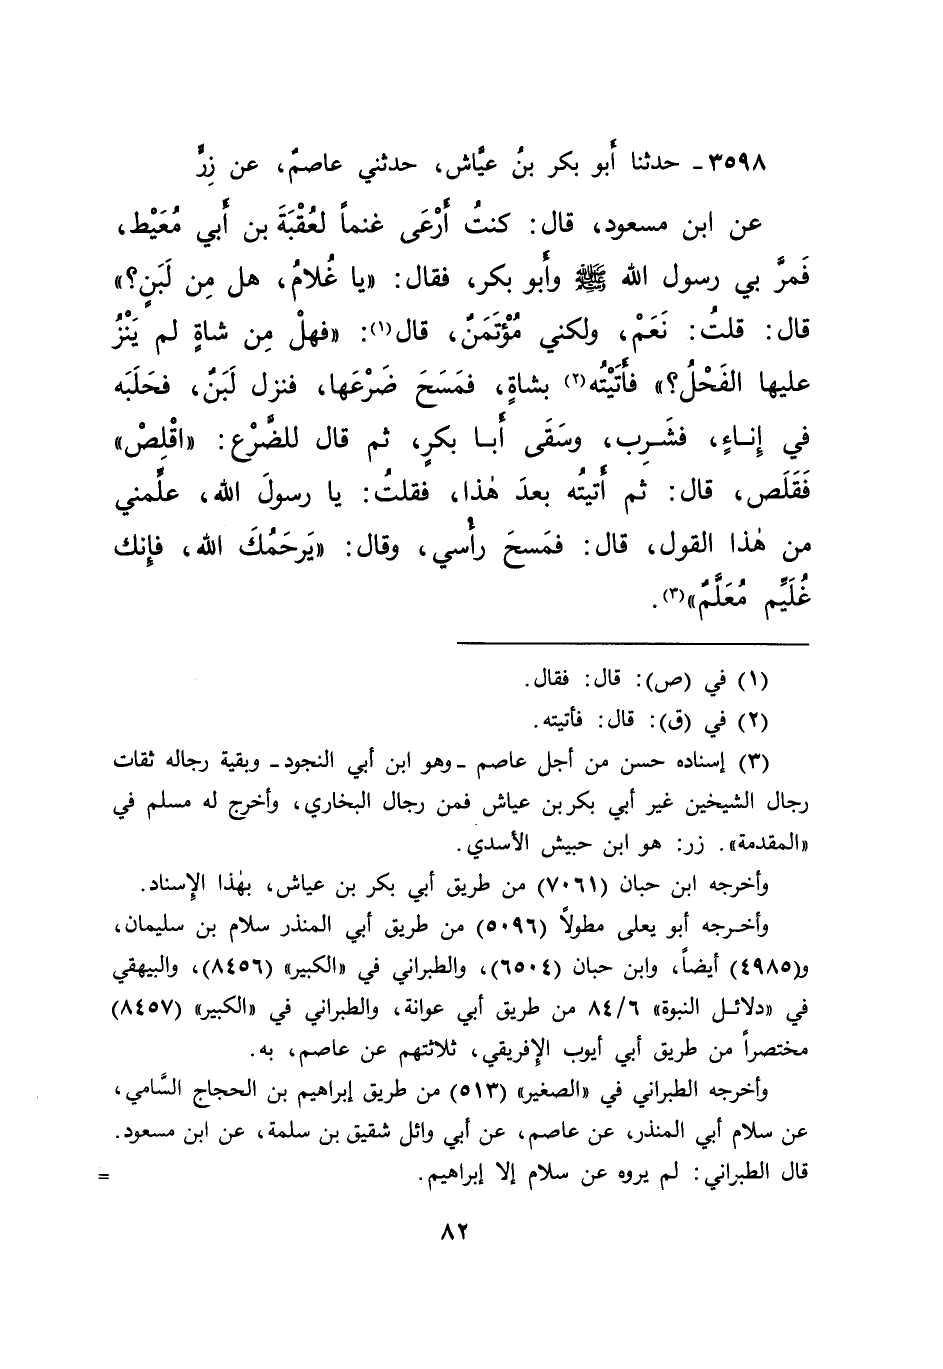 ٣٥٩٨ـ حدثنا أَبو بكر بنُ عيَّاش، حدثني عاصمٌ، عن زِرٍّ
عن ابن مسعود، قال: كنتُ أَرْعَى غنماً لعُقْبَةَ بن أَبي مُعَيْط،
فَمرَّ بي رسول الله ﷺ وأَبو بكر، فقال: «يا غُلامُ، هل مِن لَبَنٍ؟»
قال: قلتُ: نَعَمْ، ولكني مُؤْتَمَنٌ، قال(١): «فهلْ مِن شاةٍ لم يَنْزُ
عليها الفَحْلُ؟» فأَتَيْتُه(٢) بشاةٍ، فمَسَحَ ضَرْعَها، فنزل لَبَنٌ، فحَلَبَه
في إِناءٍ، فشَرِب، وسَقَى أَبا بكرٍ، ثم قال للضَّرْع: «اقْلِصْ»
فَقَلَص، قال: ثم أَتيتُه بعدَ هٰذا، فقلتُ: يا رسولَ الله، علِّمني
من هٰذا القول، قال: فمَسحَ رأْسي، وقال: «يَرحَمُكَ الله، فإِنك
غُلَيِّم مُعَلَّمٌ»(٣).
(١) في (ص): قال: فقال.
(٢) في (ق): قال: فأتيته.
(٣) إسناده حسن من أجل عاصم ـ وهو ابن أبي النجود ـ وبقية رجاله ثقات
رجال الشيخين غير أبي بكر بن عياش فمن رجال البخاري، وأخرج له مسلم في
«المقدمة». زر: هو ابن حبيش الأسدي.
وأخرجه ابن حبان (٧٠٦١) من طريق أبي بكر بن عياش، بهٰذا الإِسناد.
وأخرجه أبو يعلى مطولاً (٥٠٩٦) من طريق أبي المنذر سلام بن سليمان،
و(٤٩٨٥) أيضاً، وابن حبان (٦٥٠٤)، والطبراني في «الكبير» (٨٤٥٦)، والبيهقي
في «دلائل النبوة» ٨٤/٦ من طريق أبي عوانة، والطبراني في «الكبير» (٨٤٥٧)
مختصراً من طريق أبي أيوب الإفريقي، ثلاثتهم عن عاصم، به.
وأخرجه الطبراني في «الصغير» (٥١٣) من طريق إبراهيم بن الحجاج السَّامي،
عن سلام أبي المنذر، عن عاصم، عن أبي وائل شقيق بن سلمة، عن ابن مسعود.
قال الطبراني: لم يروه عن سلام إلا إبراهيم. =
٨٢